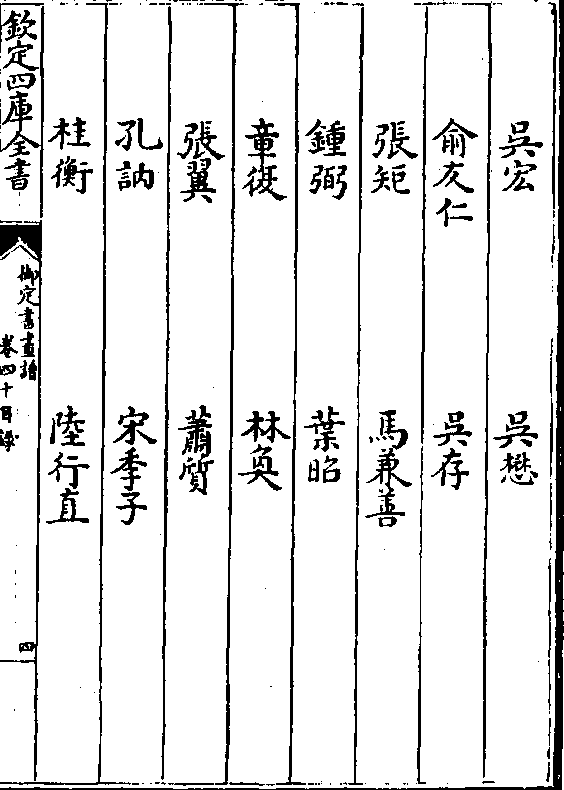 吳宏 吳懋
俞友仁 吳存
張矩 馬兼善
鍾弼 葉昭
童復 林奐
張翼 蕭質
孔訥 宋季子
桂衡 陸行直
欽定四庫全書
御定書畫譜
卷四十目錄
四